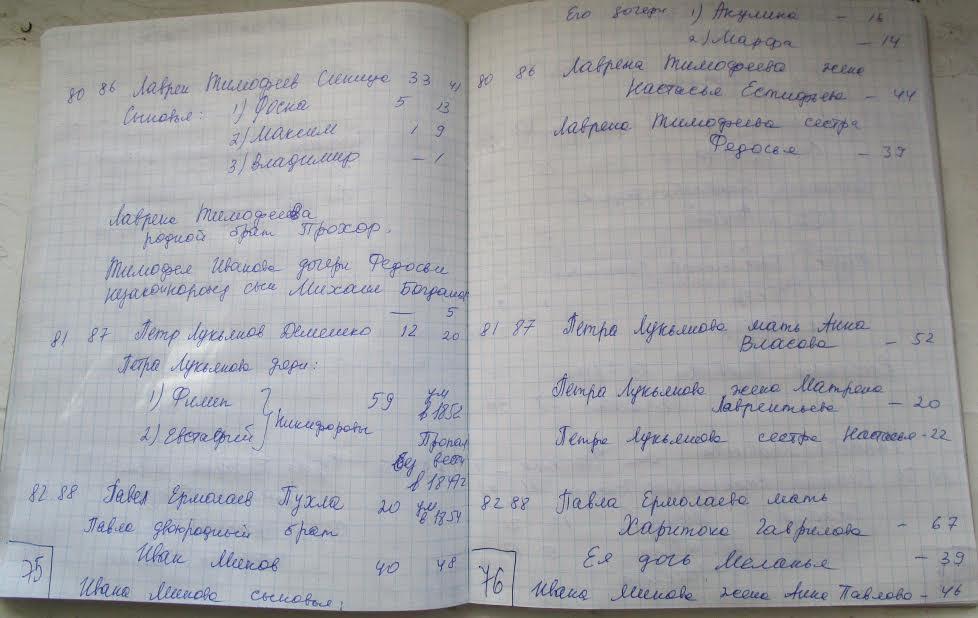 80 86 Лаврен Тимофеев Синица 33 41
Сыновья: 1) Фоска 5 13
2) Максим 1 9
3) Владимир – 1
Лаврена Тимофеева
родной брат Прохор.
Тимофея Иванова дочери Федосьи
незаконнорожд сын Михаил Богданов
— 5
81 87 Петр Лукьянов Демешко 12 20
Петра Лукьянова дяди:
1) Филип } Никифоровы 59 ум в 1852
2) Евстафий Пропал
без вести
в 1849г
82 88 Павел Ермолаев Пухла 20 ум в 1854
Павла двоюродный брат
Иван Минов 40 48
Ивана Минова сыновья:
75
Его дочери: 1) Акулина – 16
2) Марфа – 14
80 86 Лаврена Тимофеева жена
Настасья Естифьева – 44
Лаврена Тимофеева сестра
Федосья – 39
81 87 Петра Лукьянова мать Анна
Власова – 52
Петра Лукьянова жена Матрена
Лаврентьева – 20
Петра Лукьянова сестра Настасья - 22
82 88 Павла Ермолаева мать
Харитона Гаврилова – 67
Ея дочь Меланья – 39
76 Ивана Минова жена Анна Павлова – 46